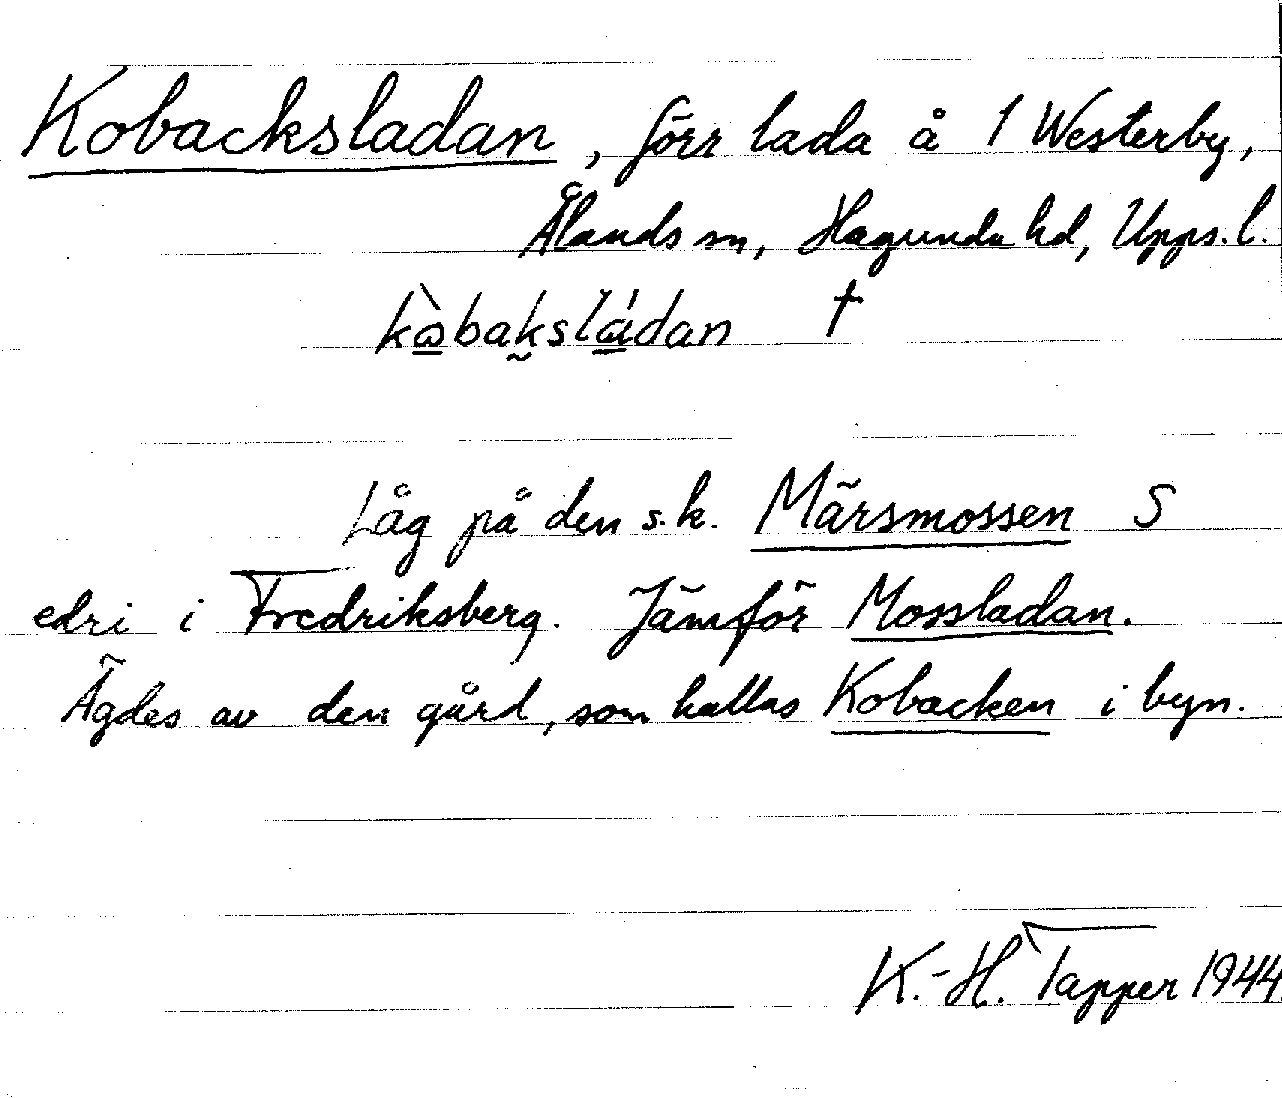 Kobacksladan, förr lada å 1 Westerby,
Ålands sn, Hagunda hd, Upps. l.
kòbaksládan †
Låg på den s.k. Märsmossen S
edri i Fredriksberg. Jämför Mossladan.
Ägdes av den gård, som kallas Kobacken i byn.
K.-H. Tapper 1944